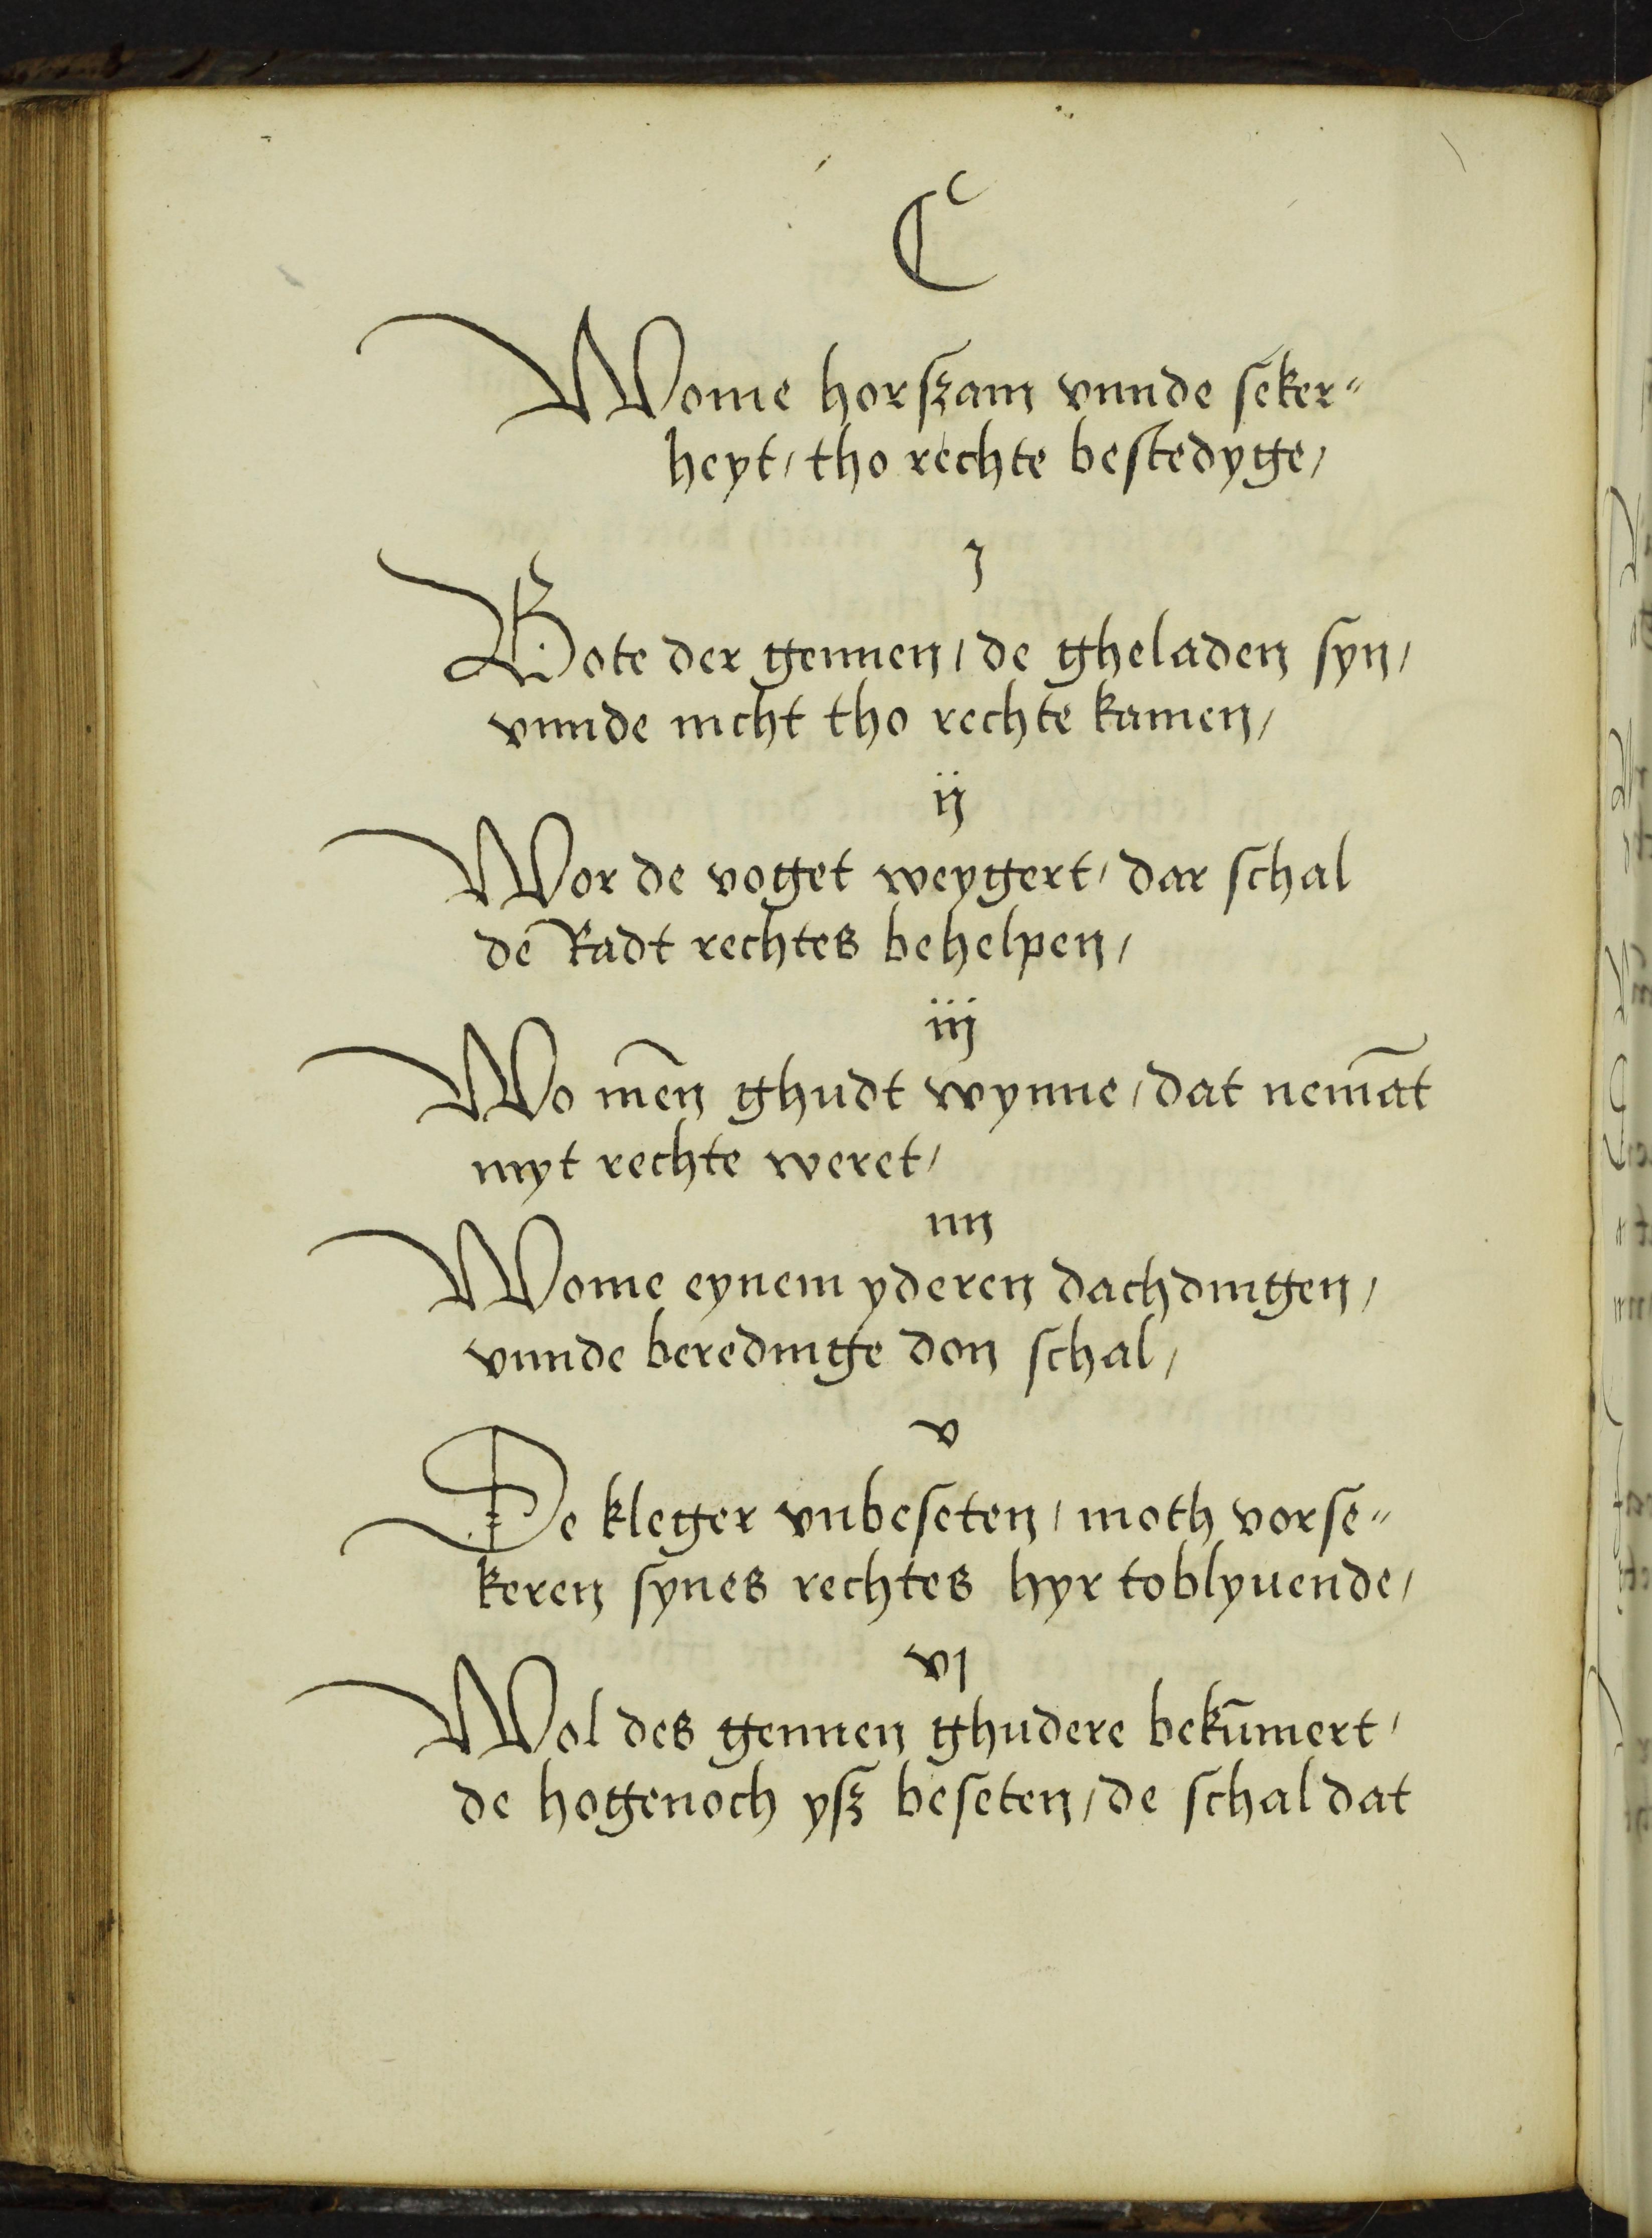 C
Wome horszam vnnde seker⸗
heyt / tho rechte bestedyge /
j
Bote der gennen / de gheladen syn /
vnnde nicht tho rechte kamen /
ij
Wor de voget weygert / dar schal
de Radt rechtes behelpen /
iij
Wo men̄ ghudt wynne / dat nemāt
myt rechte weret /
iiij
Wome eynem yderen dachdingen /
vnnde beredinge don schal /
v
De kleger vnbeseten / moth vorse⸗
keren synes rechtes hyr toblyuende /
vj
Wol des gennen ghudere bekūmert /
de hogenoch ysz beseten / de schal dat